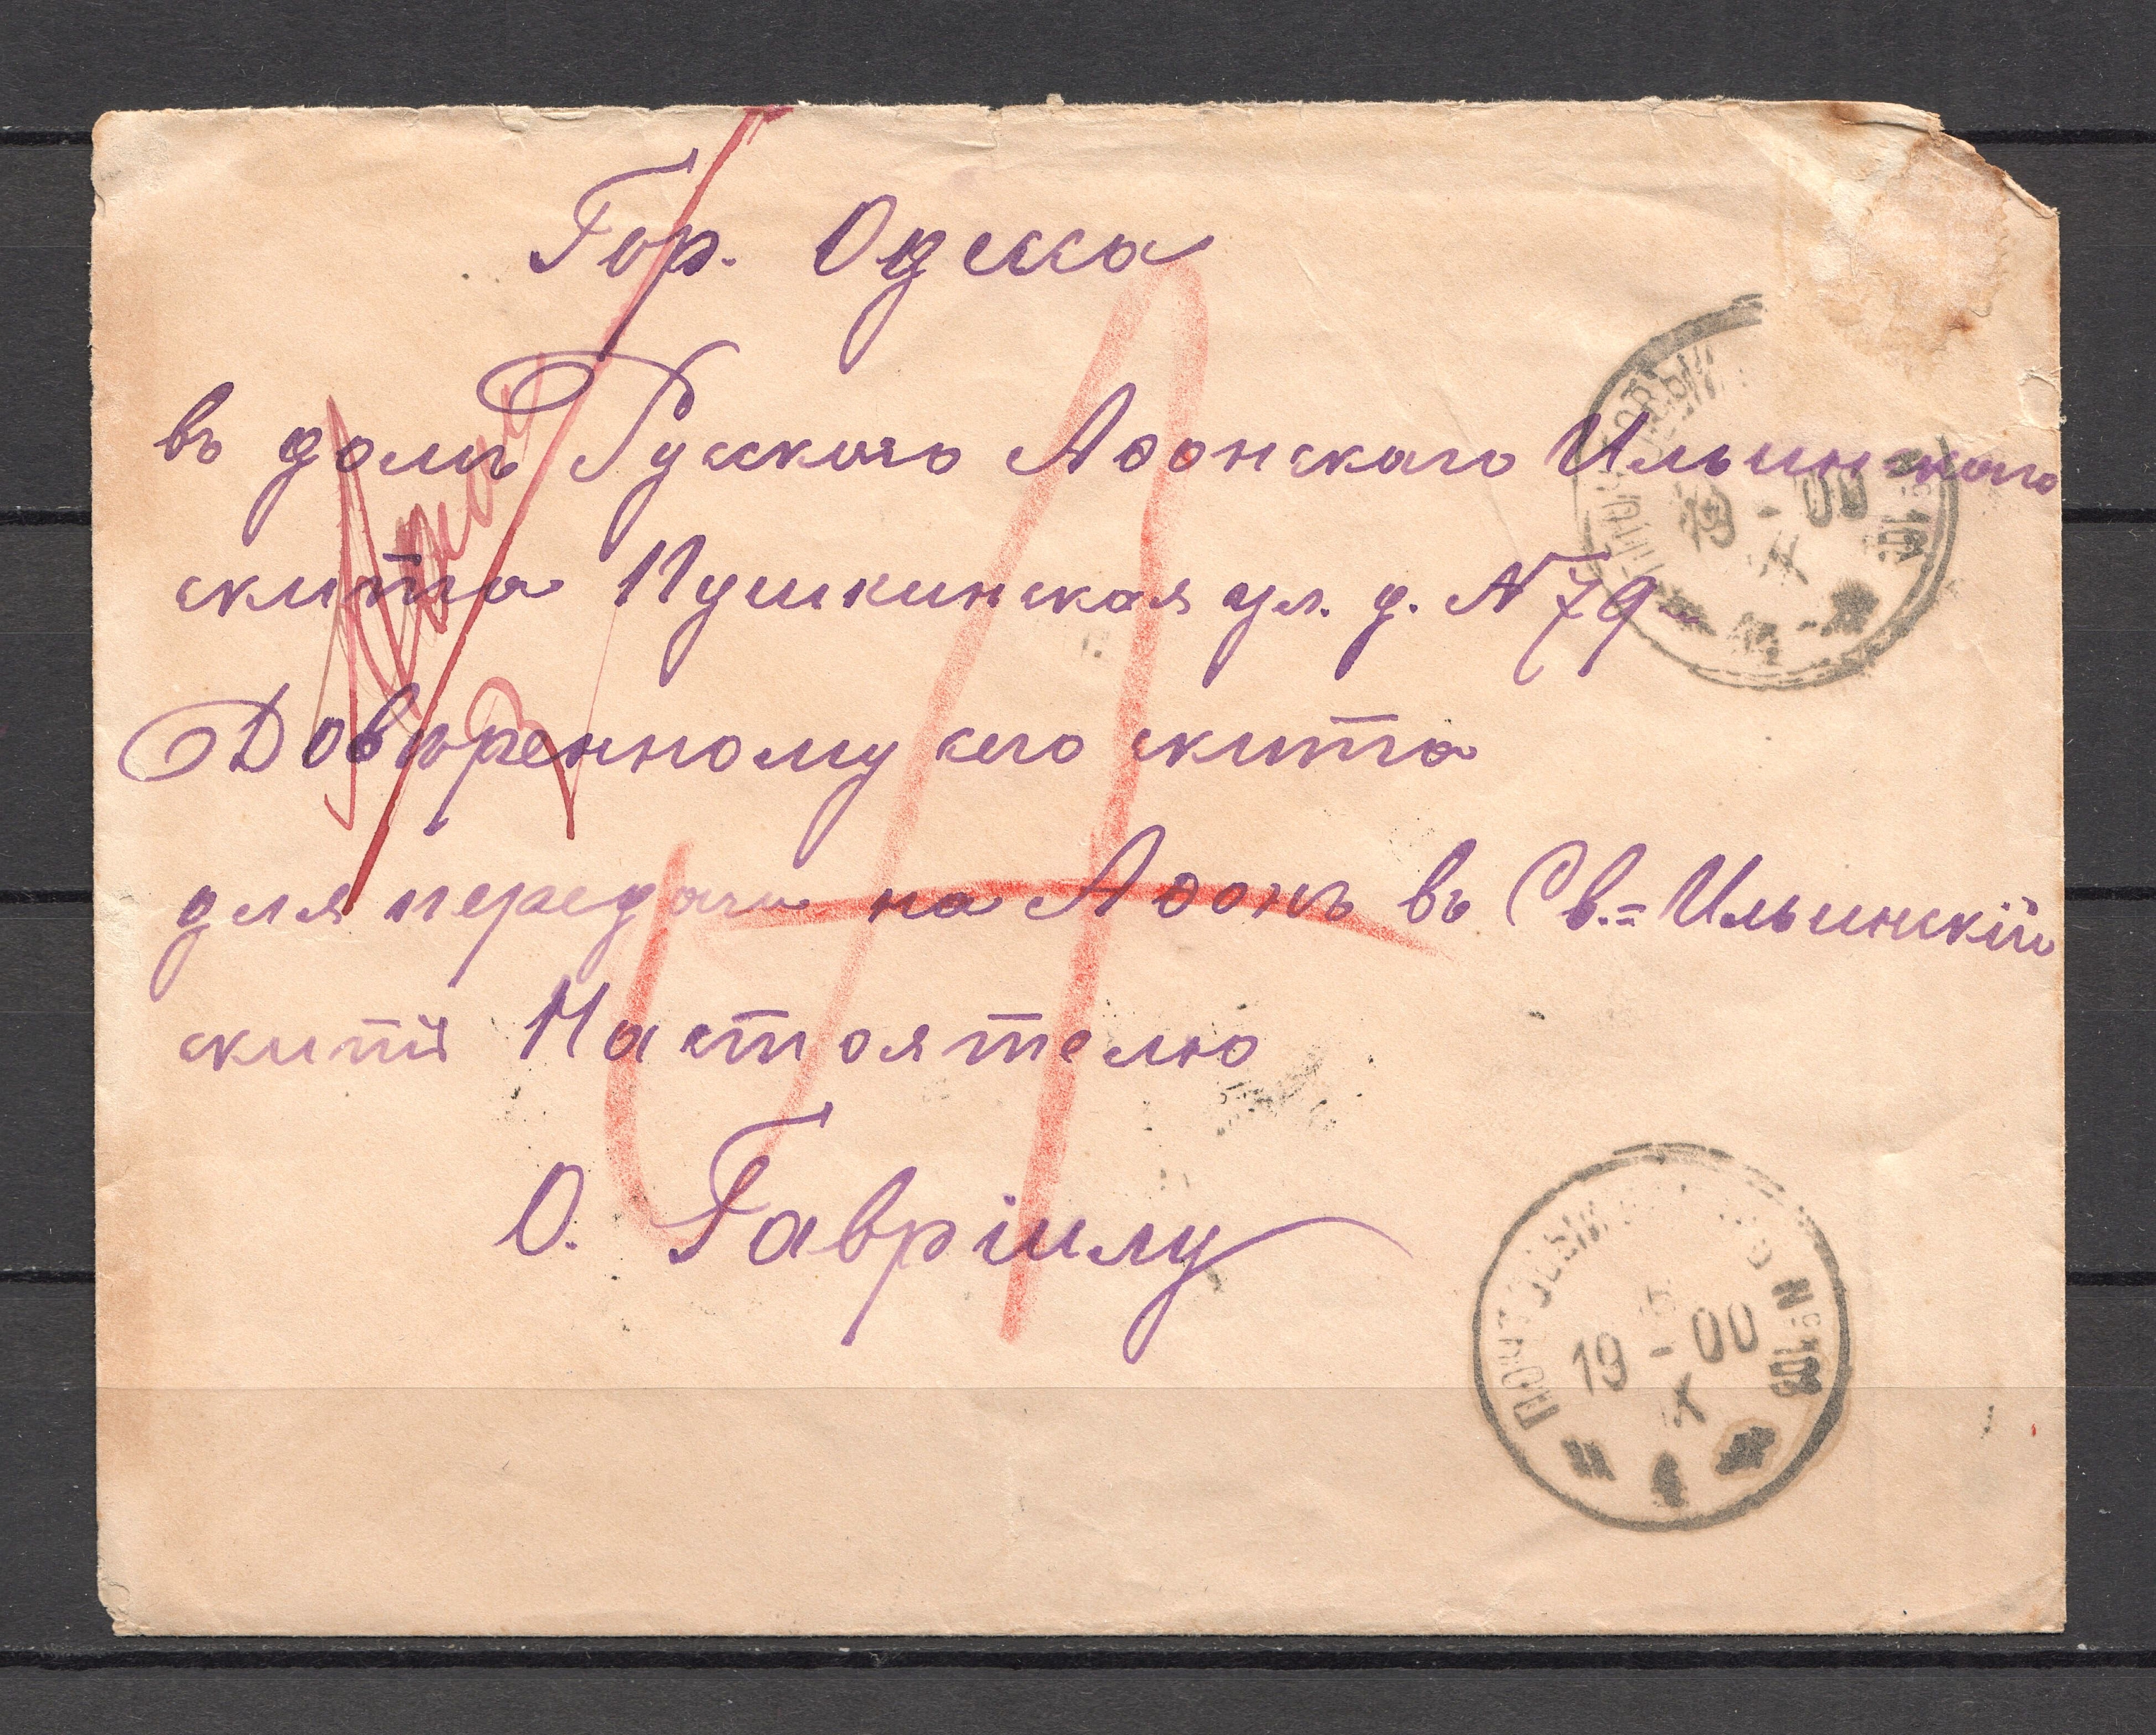 Гор. Одесса
въ домъ Русскаго Аѳонскаго Ильинскаго
скита Пушкинская ул. д. № 79
Довѣренному сего скита
для передачи на Аѳонъ въ Св.=Ильинскій
скитъ Настоятелю
О. Гавріилу
ПОЧТОВЫЙ
19-00
X
ПОЧТОВЫЙ № 108
19-00
X